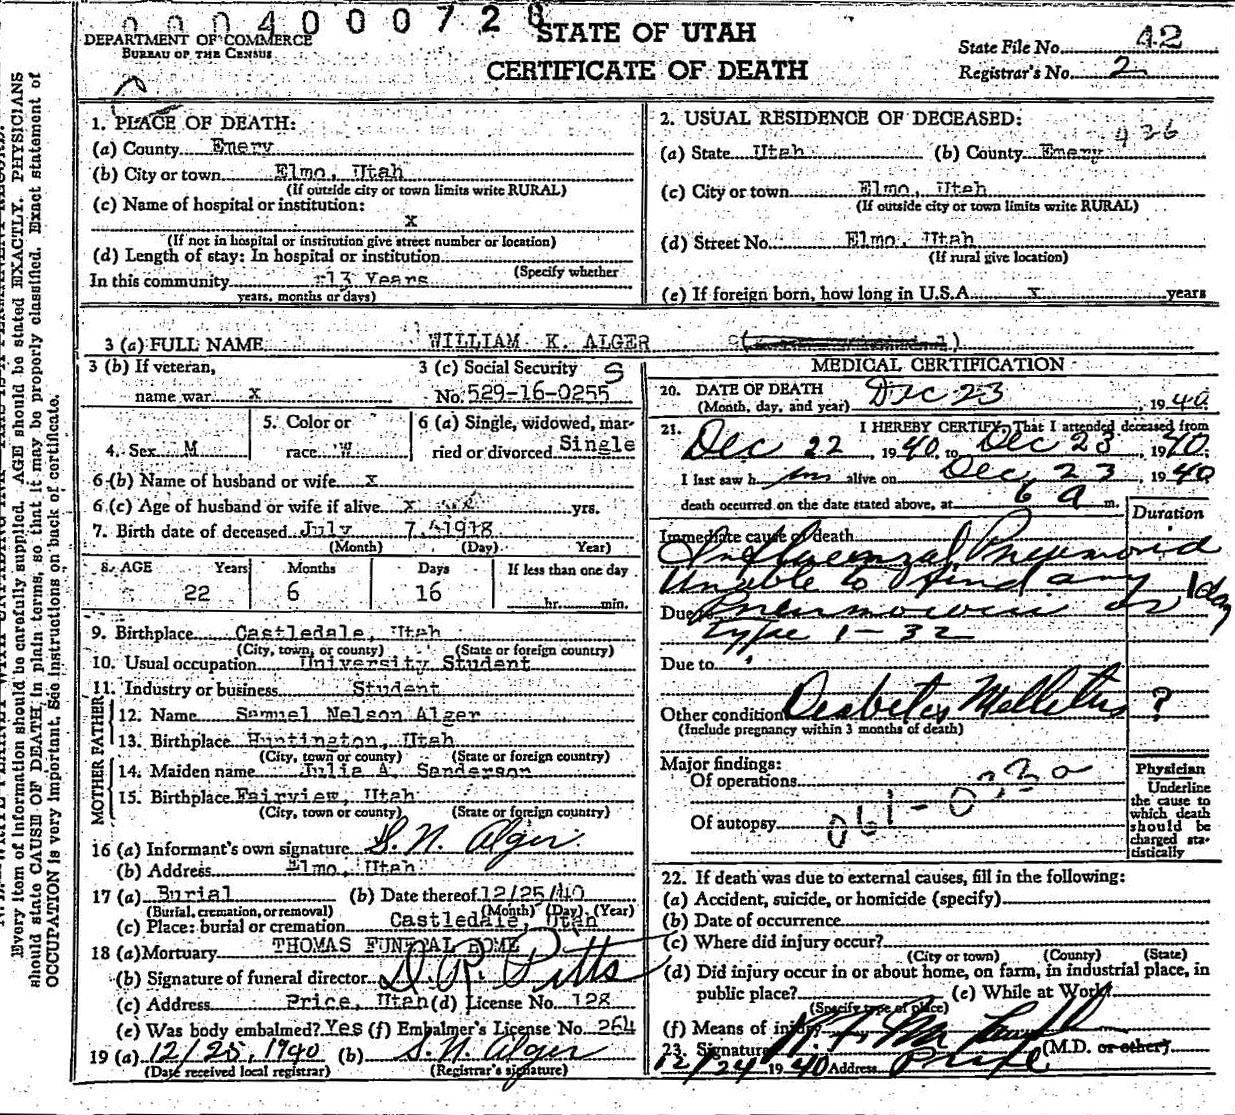 0004000728
STATE OF UTAH
DEPARTMENT OF COMMERCE
BUREAU OF THE CENSUS
CERTIFICATE OF DEATH
State File No. 42
Registrar's No. 2
Every item of information should be carefully supplied. AGE should be stated EXACTLY. PHYSICIANS
should state CAUSE OF DEATH in plain terms, so that it may be properly classified. Exact statement of
OCCUPATION is very important. See instructions on back of certificate.
1. PLACE OF DEATH:
(a) County Emery
(b) City or town Elmo, Utah
(If outside city or town limits write RURAL)
(c) Name of hospital or institution:
x
(If not in hospital or institution give street number or location)
(d) Length of stay: In hospital or institution
(Specify whether
In this community 13 Years
years, months or days)
2. USUAL RESIDENCE OF DECEASED:
936
(a) State Utah (b) County Emery
(c) City or town Elmo, Utah
(If outside city or town limits write RURAL)
(d) Street No. Elmo, Utah
(If rural give location)
(e) If foreign born, how long in U.S.A. x years
3 (a) FULL NAME WILLIAM K. ALGER
3 (b) If veteran,
name war x
3 (c) Social Security S
No. 529-16-0255
4. Sex M
5. Color or
race W
6 (a) Single, widowed, mar-
ried or divorced Single
6 (b) Name of husband or wife x
6 (c) Age of husband or wife if alive x yrs.
7. Birth date of deceased July 7, 1918
(Month) (Day) Year)
8. AGE Years Months Days If less than one day
22 6 16 hr. min.
9. Birthplace Castledale, Utah
(City, town, or county) (State or foreign country)
10. Usual occupation University Student
11. Industry or business Student
FATHER
12. Name Samuel Nelson Alger
13. Birthplace Huntington, Utah
(City, town or county) (State or foreign country)
MOTHER
14. Maiden name Julia A. Sanderson
15. Birthplace Fairview, Utah
(City, town or county) (State or foreign country)
16 (a) Informant's own signature S. N. Alger
(b) Address Elmo, Utah
17 (a) Burial (b) Date thereof 12/25/40
(Burial, cremation, or removal) (Month) (Day) (Year)
(c) Place: burial or cremation Castledale, Utah
18 (a) Mortuary THOMAS FUNERAL HOME
(b) Signature of funeral director D. R. Pitts
(c) Address Price, Utah (d) License No. 128
(e) Was body embalmed? Yes (f) Embalmer's License No. 264
19 (a) 12/25, 1940 (b) S. N. Alger
(Date received local registrar) (Registrar's signature)
MEDICAL CERTIFICATION
20. DATE OF DEATH Dec 23
(Month, day, and year) , 1940
21. I HEREBY CERTIFY, That I attended deceased from
Dec 22, 1940, to Dec 23, 1940;
I last saw him alive on Dec 23, 1940
death occurred on the date stated above, at 6 a m.
Duration
Immediate cause of death
Influenzal Pneumonia
Unable to find any 1 day
Due to Pneumococci or
type 1-32
Due to
Other condition Diabetes Mellitus ?
(Include pregnancy within 3 months of death)
Major findings:
Of operations
Of autopsy 061-033a
Physician
Underline
the cause to
which death
should be
charged sta-
tistically
22. If death was due to external causes, fill in the following:
(a) Accident, suicide, or homicide (specify)
(b) Date of occurrence
(c) Where did injury occur?
(City or town) (County) (State)
(d) Did injury occur in or about home, on farm, in industrial place, in
public place? (e) While at Work?
(Specify type of place)
(f) Means of injury
23. Signature (M.D. or other)
12/24 1940 Address Price